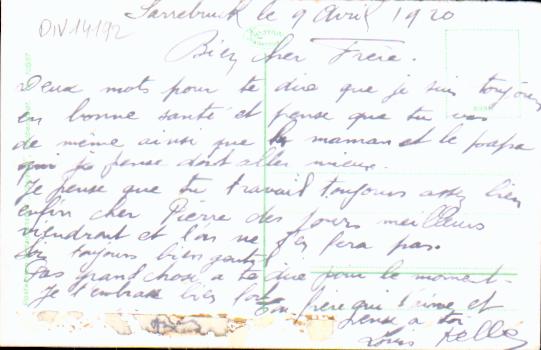 Sarrebruck le 9 Avril 1920
DIV.14192
Bien cher Frère.
Deux mots pour te dire que je suis toujours
en bonne santé et pense que tu vas
de même ainsi que la maman et le papa
qui je pense doit aller mieux.
Je pense que tu travail toujours assez bien
enfin cher Pierre des jours meilleurs
viendront et l'on ne s'en fera pas.
Soi toujours bien gentil
Pas grand chose a te dire pour le moment.
Je t'embrasse bien fort
ton frère qui t'aime et
pense a toi
Louis